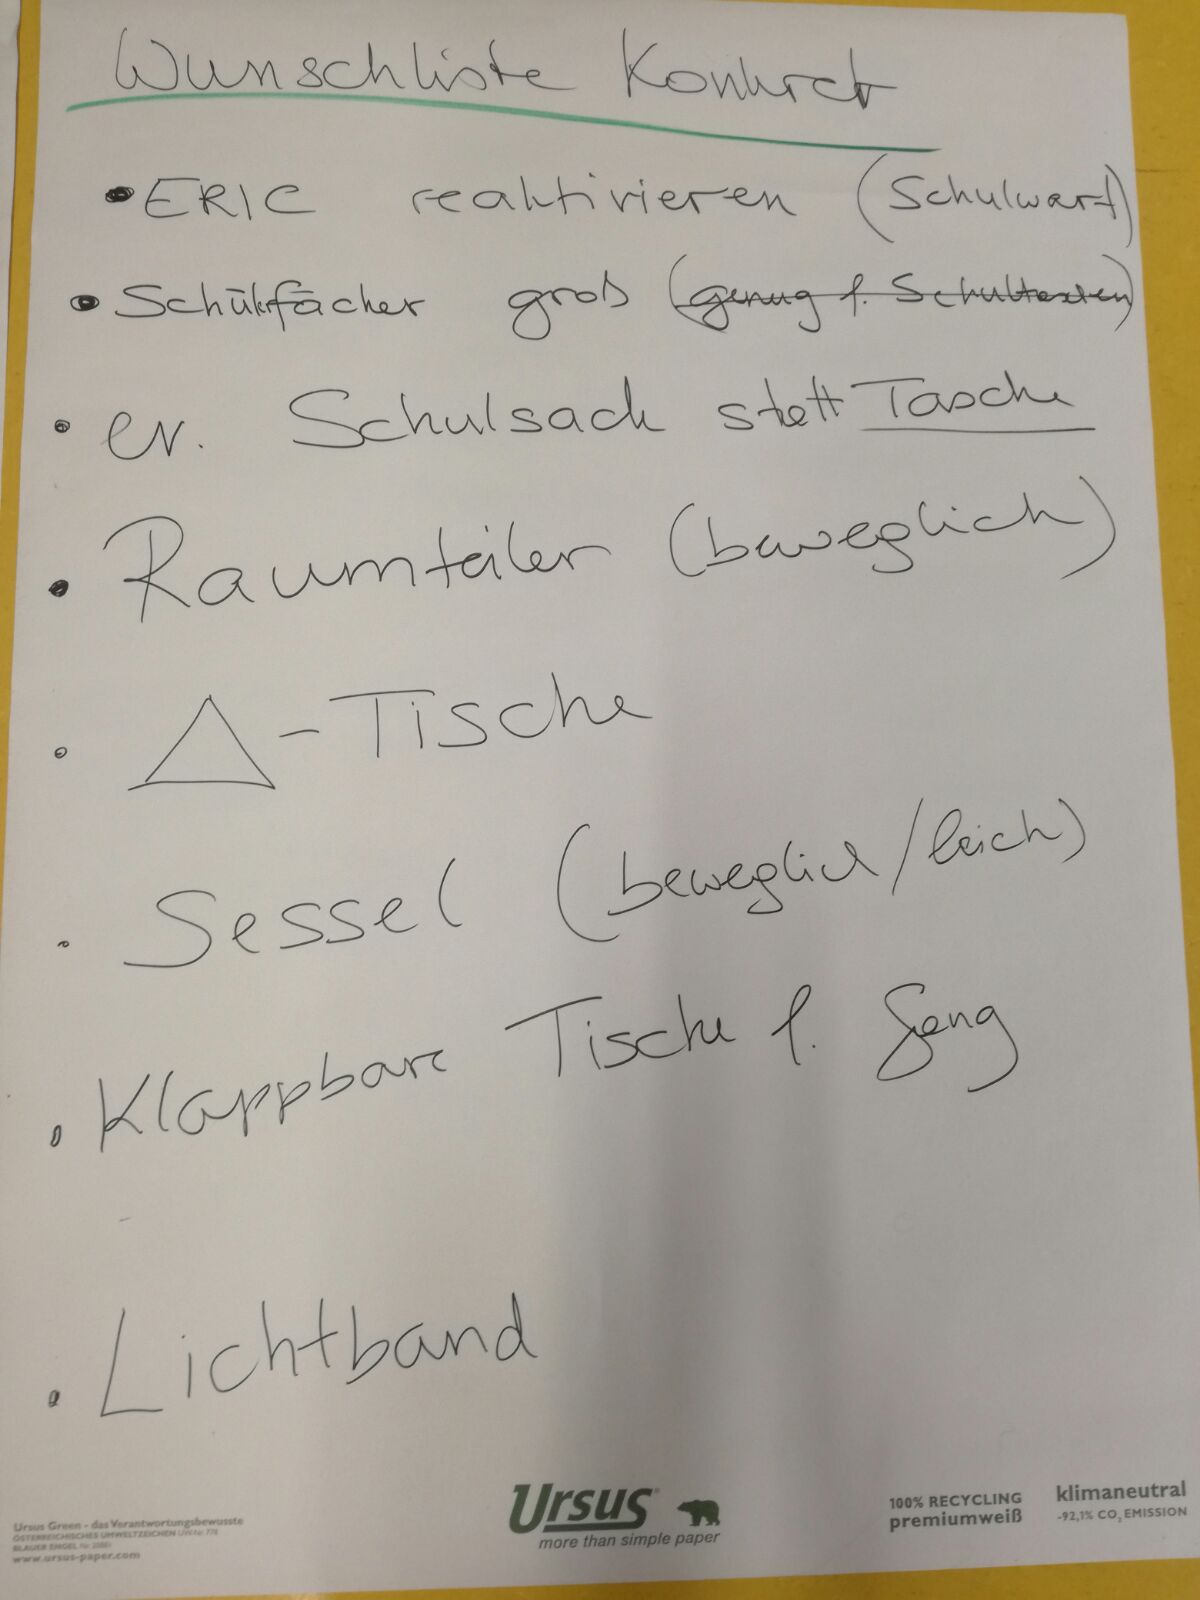 Wunschliste Konkret
• ERIC reaktivieren (Schulwart)
• Schulfächer groß (genug f. Schultaschen)
• ev. Schulsack statt Tasche
• Raumteiler (beweglich)
• △-Tische
• Sessel (beweglich/leich)
• Klappbare Tische f. Gang
• Lichtband
Ursus Green - das Verantwortungsbewusste
ÖSTERREICHISCHES UMWELTZEICHEN
BLAUER ENGEL
www.ursus-paper.com
Ursus®
more than simple paper
100% RECYCLING
premiumweiß
klimaneutral
-92,1% CO₂ EMISSION